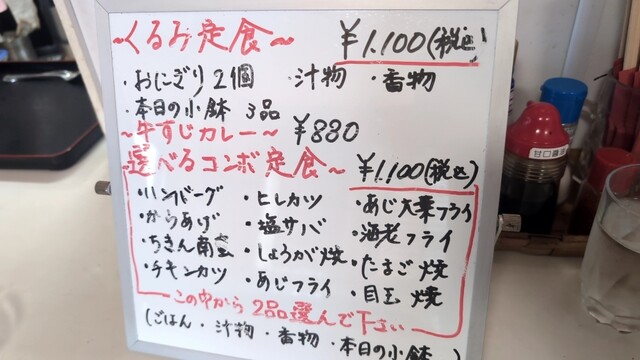 ~くるみ定食~ ¥1.100(税込)
・おにぎり2個 ・汁物 ・香物
・本日の小鉢 3品
~牛すじカレー~ ¥880
~選べるコンボ定食~ ¥1.100(税込)
・ハンバーグ ・ヒレカツ ・あじ大葉フライ
・からあげ ・塩サバ ・海老フライ
・ちきん南蛮 ・しょうが焼 ・たまご焼
・チキンカツ ・あじフライ ・目玉焼
この中から2品選んで下さい
(ごはん・汁物・香物・本日の小鉢)
甘口醤油